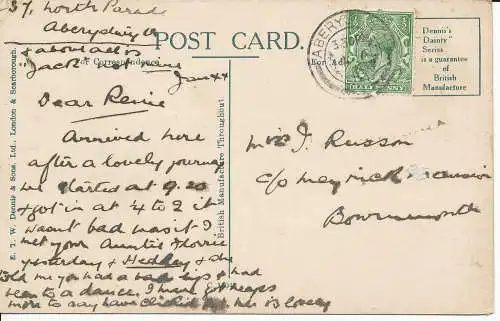 37, North Parade
Aberystwyth
POST CARD.
For Correspondence
Dear Renie
Arrived here
after a lovely journey
we started at 9.20
& got in at 4 to 2 it
wasn't bad was it? I
met your Auntie Florrie
yesterday & Hedley & she
told me you had a bad lip & had
been to a dance. I have got heaps
more to say have clicked he is lovely
E. T. W. Dennis & Sons, Ltd., London & Scarborough.
British Manufacture Throughout
For Ad
ABERY
HALF PENNY
Dennis's
"Dainty"
Series
is a guarantee
of
British
Manufacture
Miss I. Russon
c/o Meyrick Mansions
Bournemouth